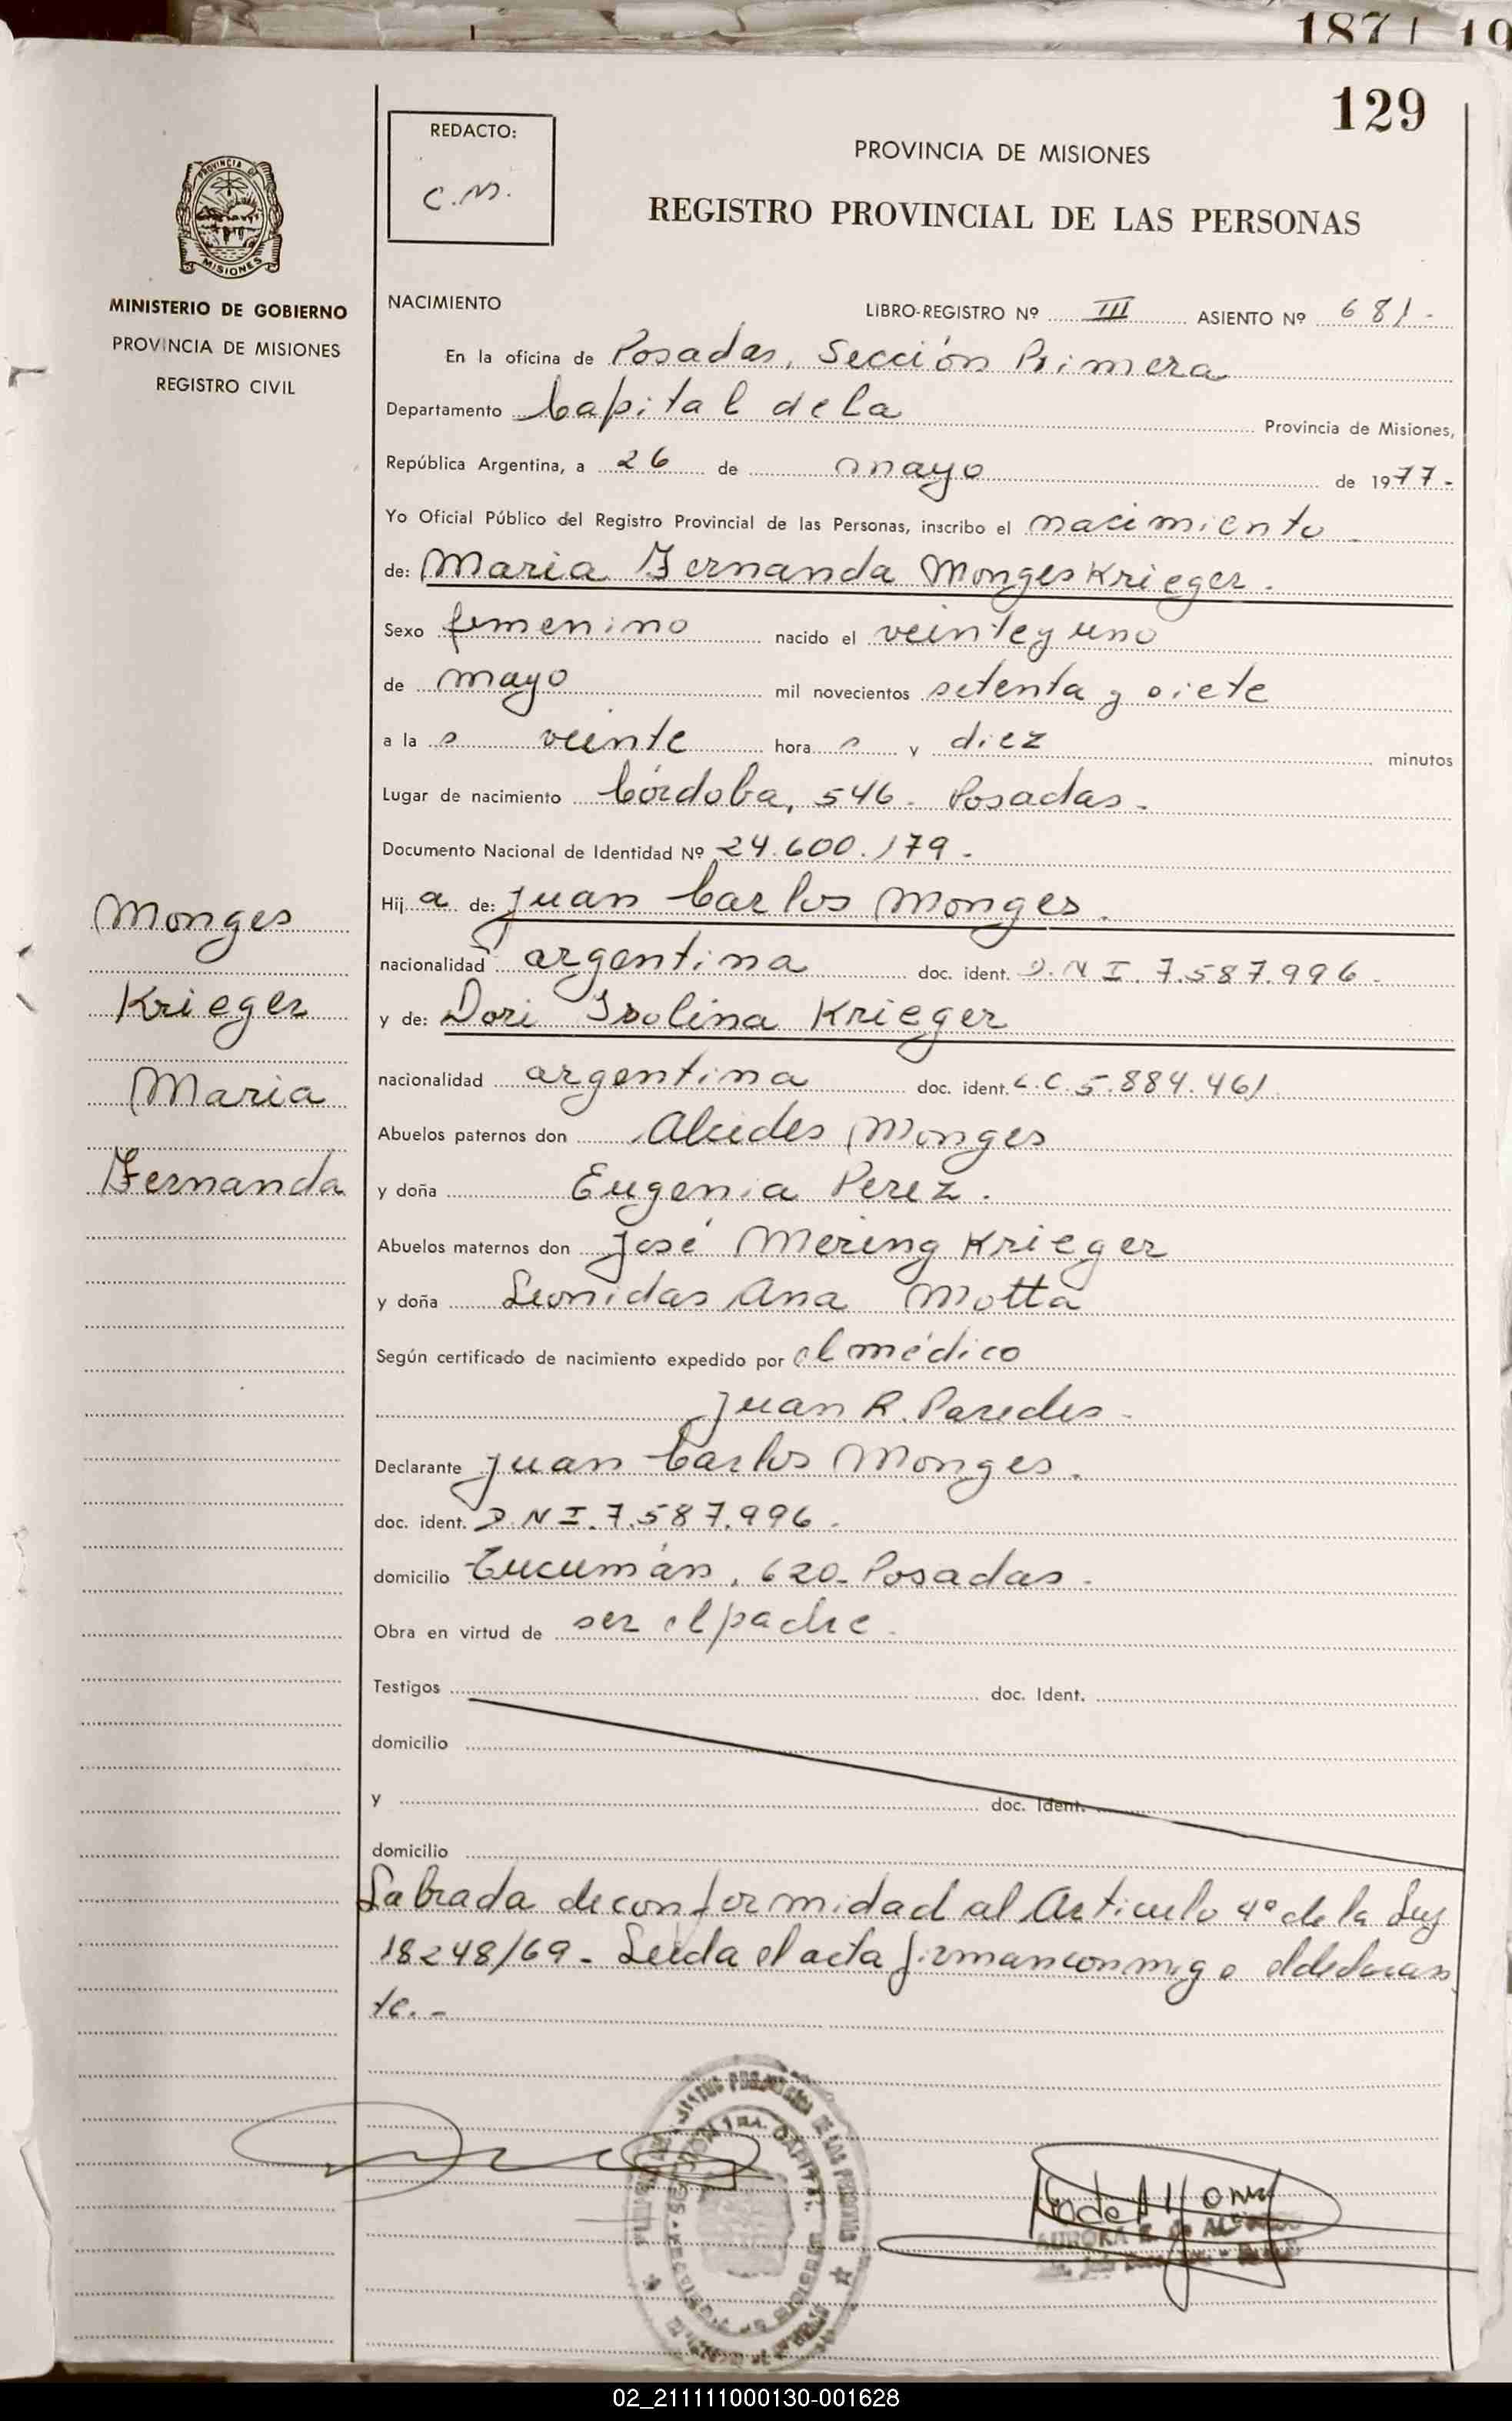 187 | 19
129
REDACTO:
C.M.
PROVINCIA DE MISIONES
REGISTRO PROVINCIAL DE LAS PERSONAS
PROVINCIA DE
MISIONES
MINISTERIO DE GOBIERNO
PROVINCIA DE MISIONES
REGISTRO CIVIL
NACIMIENTO LIBRO-REGISTRO Nº III ASIENTO Nº 681.-
En la oficina de Posadas, Sección Primera
Departamento Capital de la Provincia de Misiones,
República Argentina, a 26 de mayo de 1977.-
Yo Oficial Público del Registro Provincial de las Personas, inscribo el nacimiento
de: Maria Fernanda Monges Krieger.
Sexo femenino nacido el veinte y uno
de mayo mil novecientos setenta y siete
a la s veinte hora s y diez minutos
Lugar de nacimiento Córdoba, 546. Posadas.-
Documento Nacional de Identidad Nº 24.600.179.
Hij a de: Juan Carlos Monges.
nacionalidad argentina doc. ident. D.N.I. 7.587.996.
y de: Dori Isolina Krieger
nacionalidad argentina doc. ident. L.C. 5.884.461
Abuelos paternos don Alcides Monges
y doña Eugenia Perez.
Abuelos maternos don José Mering Krieger
y doña Leonidas Ana Motta
Según certificado de nacimiento expedido por el médico
Juan R. Paredes.
Declarante Juan Carlos Monges.
doc. ident. D.N.I. 7.587.996.
domicilio Tucumán, 620- Posadas.
Obra en virtud de ser el padre.
Testigos doc. Ident.
domicilio
y doc. Ident.
domicilio
Labrada de conformidad al Articulo 4º de la Ley
18248/69- Leida el acta firman conmigo el declaran
te.-
Monges
Krieger
Maria
Fernanda
02_211111000130-001628